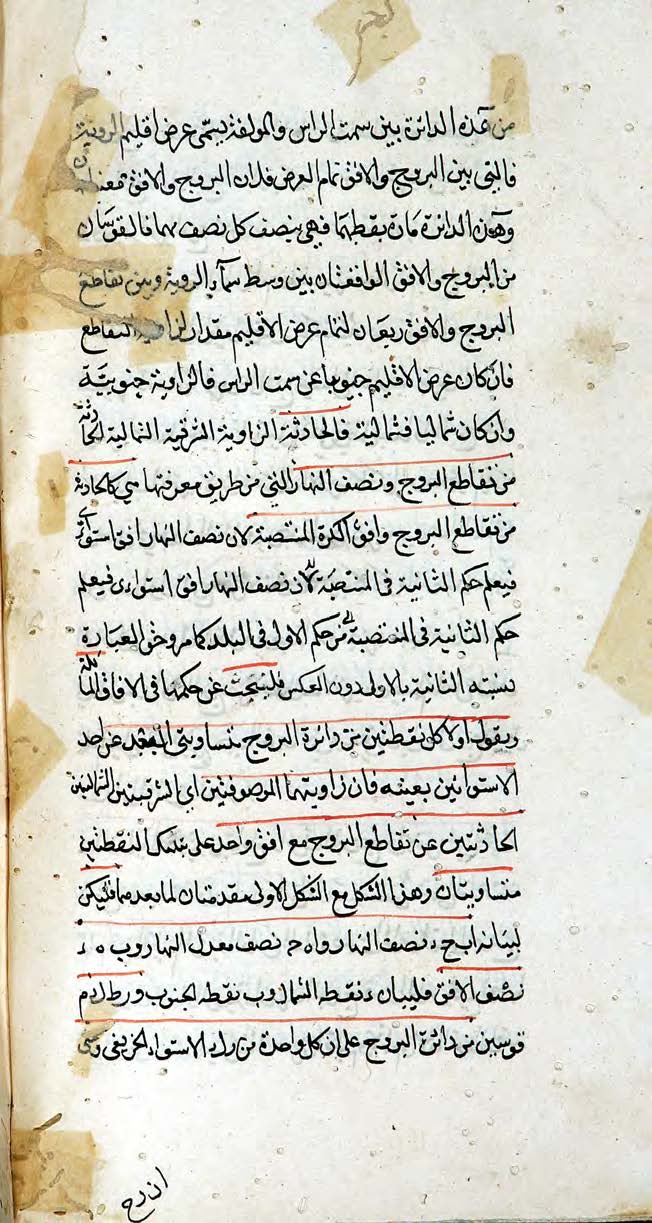 من هذه الدائرة بين سمت الراس والمولفة يسمى عرض اقليم الروية
فالتي بين البروج والافق تمام العرض فلان البروج والافق
وهذه الدائرة مارة بقطبهما فهي ينصف كل نصف بهما فالقوسان
من البروج والافق الواقعتان بين وسط سماء الروية وبين تقاطع
البروج والافق ربعان لتمام عرض الاقليم مقدار لزاوية التقاطع
فان كان عرض الاقليم جنوبيا عن سمت الراس فالزاوية جنوبية
وان كان شماليا فشمالية فالحادثة الزاوية الشرقية الشمالية الحادثة
من تقاطع البروج ونصف النهار التي من طريق معرفتها هي كالحادثة
من تقاطع البروج وافق الكرة المنتصبة لان نصف النهار افق استوائي
فيعلم حكم الثانية في المنتصبة لان نصف النهار افق استواءى فيعلم
حكم الثانية في المنتصبة من حكم الاول في البلد كما مر وحق العبارة
تشبيه الثانية بالاولى دون العكس فلنبحث عن حكمها في الافاق المائلة
ويقول اولا كل نقطتين من دائرة البروج متساويتى البعد عن احد
الاستوائين بعينه فان زاويتهما الموصوفتين اي الشرقيتين الشماليتين
الحادثتين عن تقاطع البروج مع افق واحد على تينك النقطتين
متساويتان وهذا الشكل مع الشكل الاولى مقدمتان لما بعدهما فليكن
لبيانه ابحء نصف النهار واه ح نصف معدل النهار وب ه ء
نصف الافق فليبان ء نقطة الشمال وب نقطة الجنوب و رط لام
قوسين من دائرة البروج على ان كل واحدة من ر ل الاستواء الخريفى